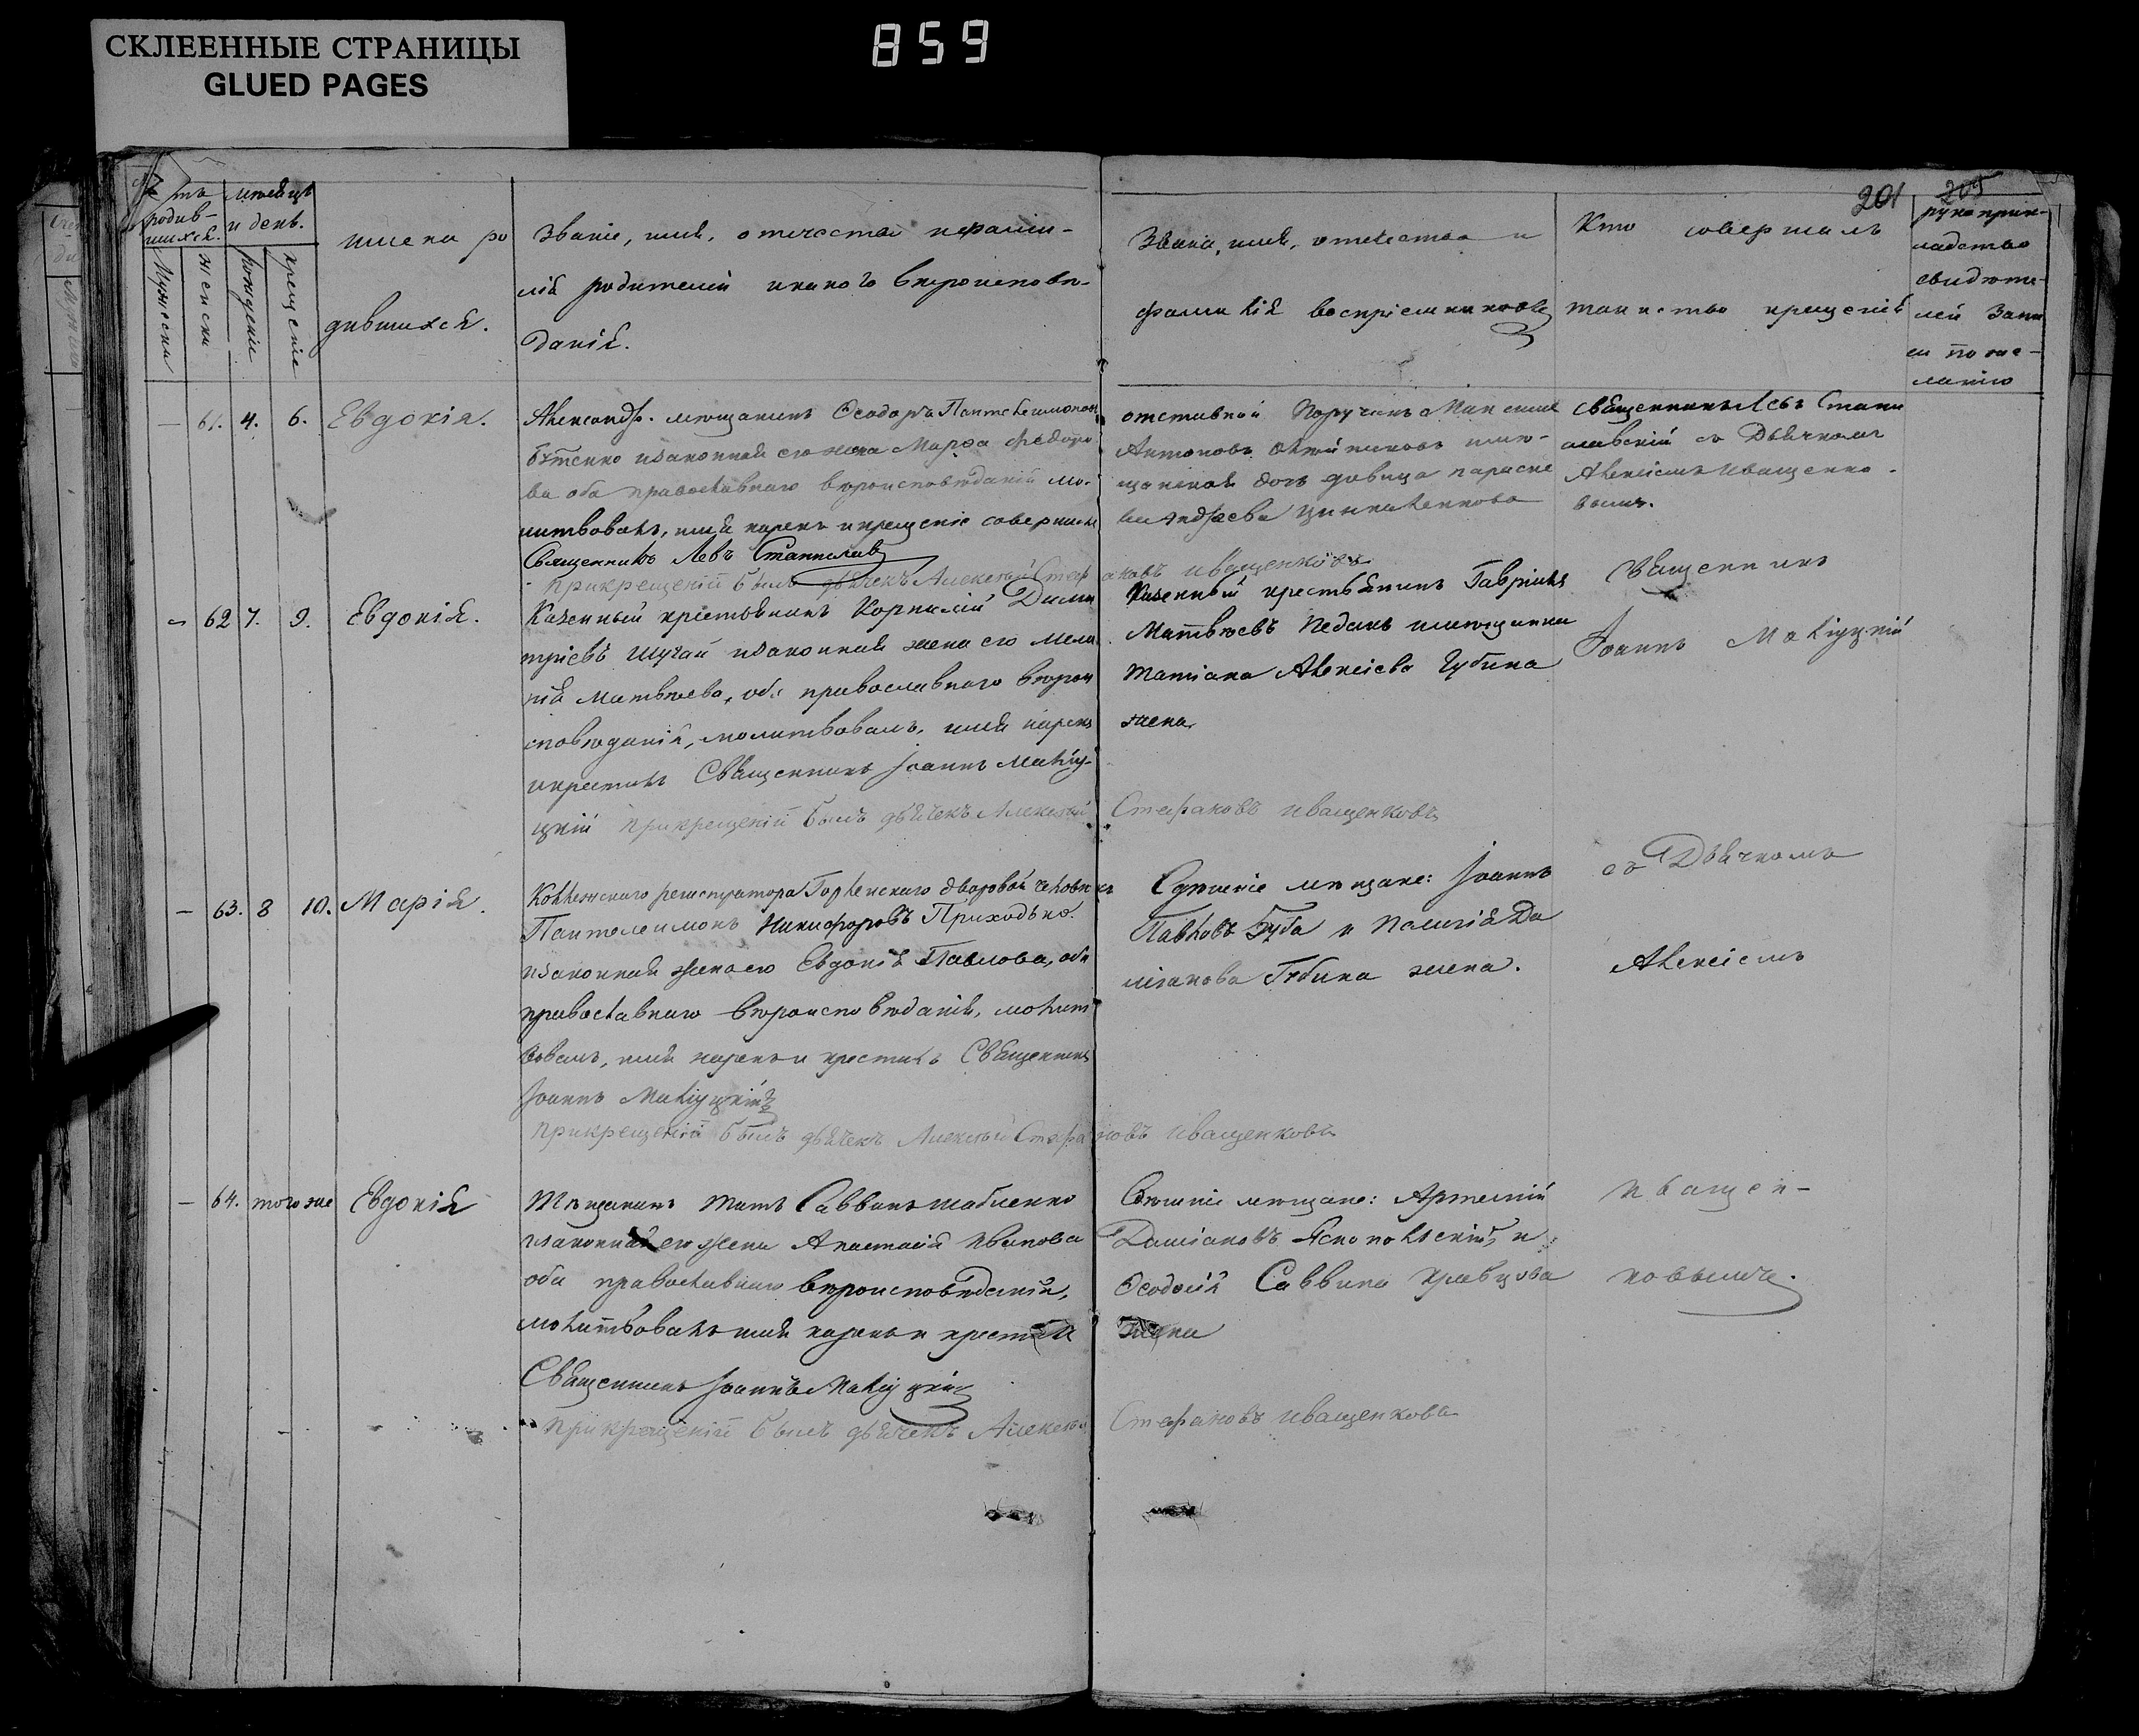 СКЛЕЕННЫЕ СТРАНИЦЫ
GLUED PAGES
859
201
205
родив-
шихся.
мѣсяцъ
и день.
Мужески
женски
рожденіе
крещеніе
имена ро
дившихся.
Званіе, имя, отчество и фами-
лія родителей и какого вѣроисповѣ-
данія.
Званіе, имя, отчество и
фамилія воспріемниковъ
Кто совершалъ
таинство крещенія
рукоприк-
ладство
свидѣте-
лей запи
си по же-
ланію
— 61. 4. 6. Евдокія.
Александр. мещанинъ Ѳеодоръ Пантелеимонов
Бутенко и законная его жена Марѳа Федоро
ва оба православнаго вѣроисповѣданія мо-
литвовалъ, имя нарекъ и крещеніе совершилъ
Священникъ Левъ Станиславскій
при крещеніи былъ дьячекъ Алексѣй Стеф
ановъ Иващенковъ
отставной Поручикъ Максимъ
Антоновъ
щанская дочь девица Параске
ва Андреева
Священникъ Левъ Стани
славскій съ Дьячкомъ
Алексіемъ Иващенко-
вымъ.
— 62 7. 9. Евдокія.
Казенный крестьянинъ Корнилій Дими
тріевъ Шугай и законная жена его Мела
нія Матвѣева, оба православнаго вѣрои
сповѣданія, молитвовалъ, имя нарекъ
и крестилъ Священникъ Іоаннъ
цкій при крещеніи былъ дьячекъ Алексѣй
Стефановъ Иващенковъ
Казенный крестьянинъ Гавріилъ
Матвѣевъ Педакъ и мещанка
Татіана Алексіева Губина
жена
Священникъ
Іоаннъ
— 63. 8 10. Марія.
Коллежскаго регистратора Горленскаго дворовой человекъ
Пантелеимонъ Никифоровъ Приходько
и законная жена его Евдокія Павлова, оба
православнаго вѣроисповѣданія, молит
вовалъ, имя нарекъ и крестилъ Священникъ
Іоаннъ
при крещеніи былъ дьячекъ Алексѣй Стефа
новъ Иващенковъ
мещане: Іоаннъ
Павловъ Губа и Пелагія Да
міанова Губина жена.
съ Дьячкомъ
Алексіемъ
— 64. того же Евдокія
Мещанинъ Титъ Саввинъ
и законная его жена Анастасія Иванова
оба православнаго вѣроисповѣданія,
молитвовалъ имя нарекъ и крестилъ
Священникъ Іоаннъ
при крещеніи былъ дьячекъ Алексѣй
Стефановъ Иващенковъ
мещане: Артемій
Даміановъ Яснопольскій, и
Ѳеодосія Саввина Кравцова
жена
Иващен-
ковымъ.